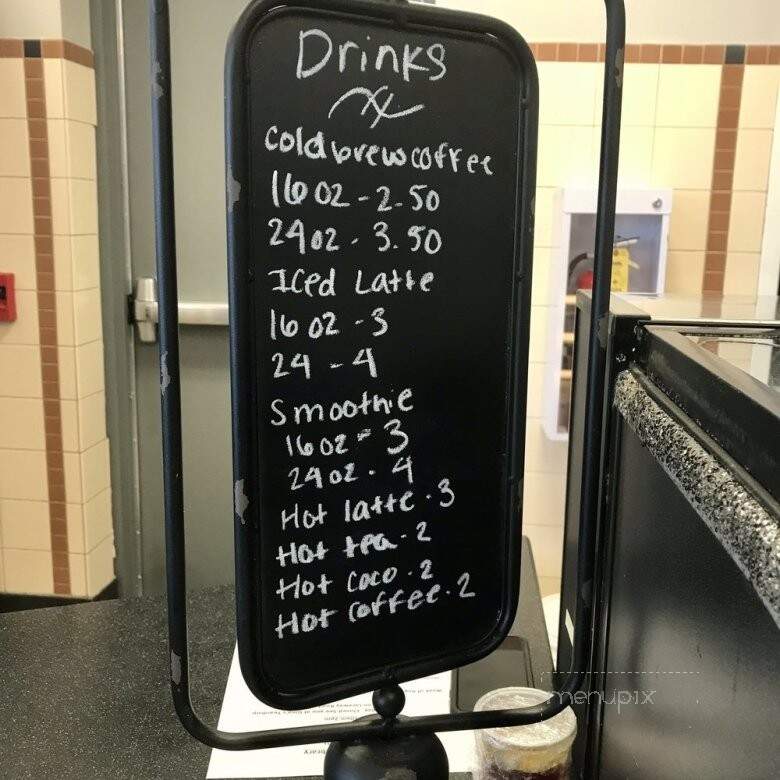 Drinks
cold brew coffee
16 oz - 2.50
24 oz - 3.50
Iced Latte
16 oz - 3
24 - 4
Smoothie
16 oz - 3
24 oz - 4
Hot latte - 3
Hot tea - 2
Hot coco - 2
Hot coffee - 2
menupix